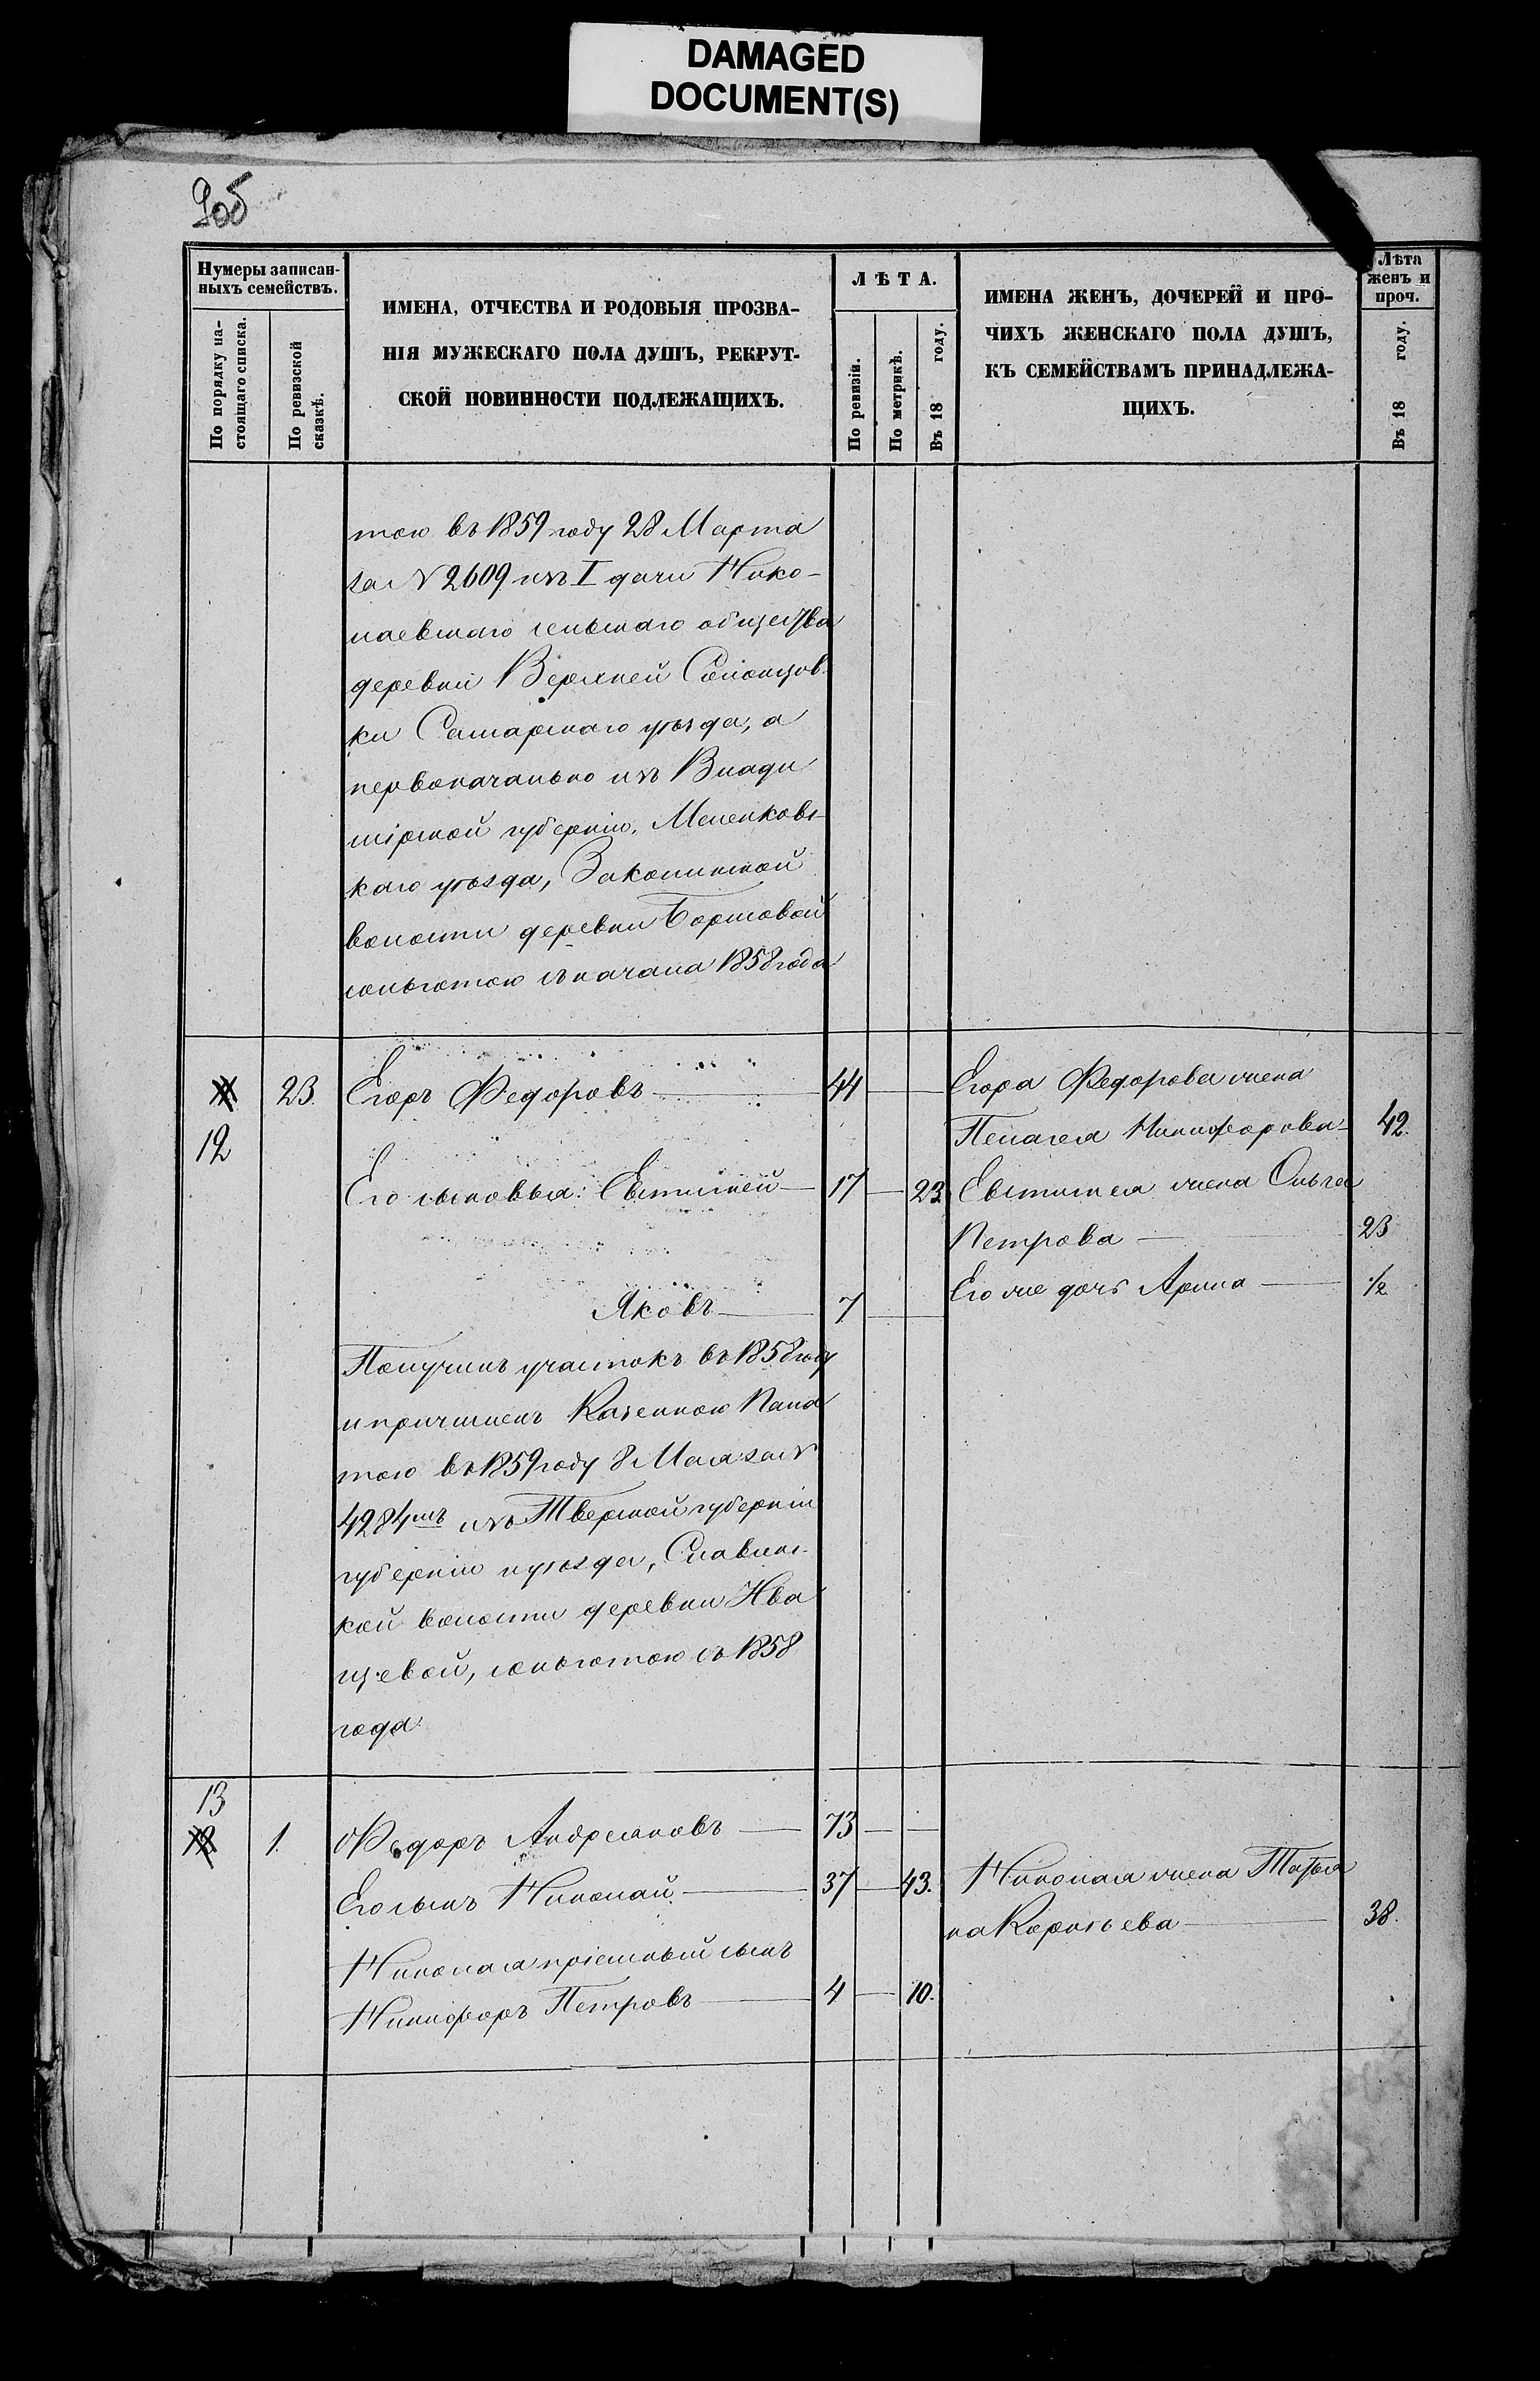 DAMAGED
DOCUMENT(S)
9об
Нумеры записан-
ныхъ семействъ.
По порядку на-
стоящаго списка.
По ревизской
сказкѣ.
ИМЕНА, ОТЧЕСТВА И РОДОВЫЯ ПРОЗВА-
НІЯ МУЖЕСКАГО ПОЛА ДУШЪ, РЕКРУТ-
СКОЙ ПОВИННОСТИ ПОДЛЕЖАЩИХЪ.
ЛѢТА.
По ревизіи.
По метрикѣ.
Въ 18 году.
ИМЕНА ЖЕНЪ, ДОЧЕРЕЙ И ПРО-
ЧИХЪ ЖЕНСКАГО ПОЛА ДУШЪ,
КЪ СЕМЕЙСТВАМЪ ПРИНАДЛЕЖА-
ЩИХЪ.
Лѣта
женъ и
проч.
Въ 18 году.
тою въ 1859 году 28 Марта
за N 2609 изъ I дачи Нико-
лаевскаго сельскаго общества
деревни Верхней Солонцов-
ки Самарскаго уѣзда, а
первоначально изъ Влади
мірской губерніи, Меленковс-
каго уѣзда,
волости деревни
сольготою съ начала 1858 года
23. Егоръ Федоровъ 44 Егора Федорова жена
12 Пелагея Никифорова 42.
Его сыновья: Евстигней 17 23 Евстигнея жена Ольга
Петрова 23
Яковъ 7 Его же дочь Арина 1/2
Получилъ участокъ въ 1858 году
и причисленъ Казенною Пала
тою въ 1859 году 8 Мая за N
4284мъ изъ Тверской губерніи
губерніи и уѣзда, Славинс-
кой волости деревни Ива
щевой, сольготою съ 1858
года
13
1. Федоръ Андреяновъ 73
Его сынъ Николай 37 43. Николая жена Татья
на Карпова 38.
Николая пріемный сынъ
Никифоръ Петровъ 4 10.